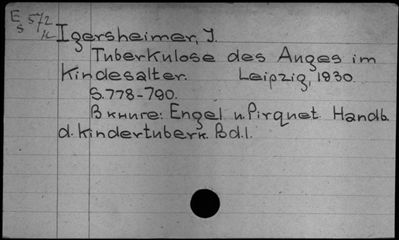 E 572
s к
Igersheimer, J.
Tuberkulose des Auges im
Kindesalter. Leipzig, 1930.
S. 778-790.
В книге: Engel u. Pirquet. Handb.
d. Kindertuberk. Bd. I.